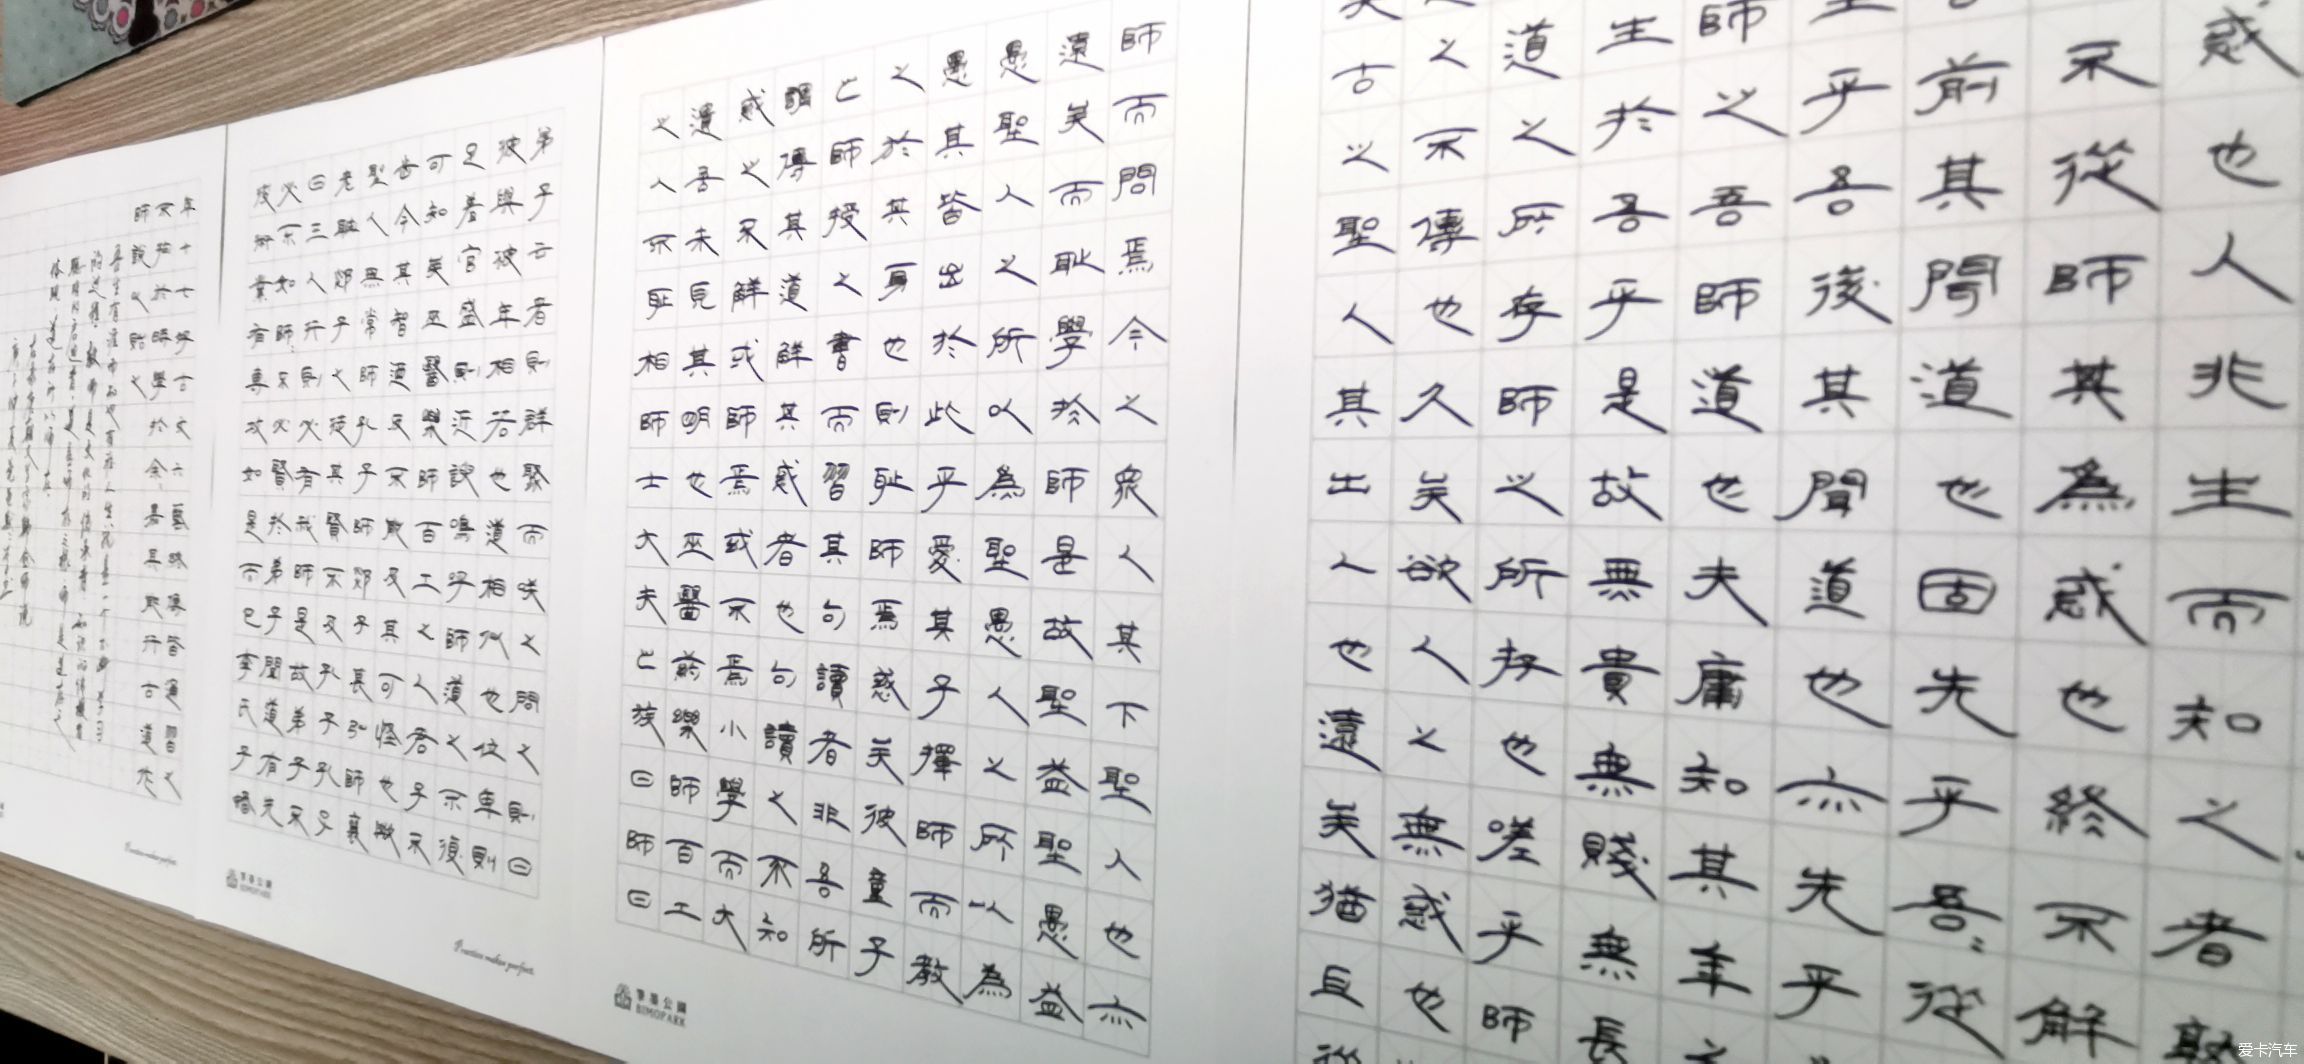 惑也人非生而知之者孰
不從師其為惑也終不解
前其聞道也固先乎吾〻從
生乎吾後其聞道也亦先乎
師之吾師道也夫庸知其年之
生於吾乎是故無貴無賤無長
道之所存師之所存也嗟乎師
之不傳也久矣欲人之無惑也
矣古之聖人其出人也遠矣猶且從
師而問焉今之眾人其下聖人也亦
遠矣而耻學於師是故聖益聖愚益
愚聖人之所以為聖愚人之所以為
愚其皆出於此乎愛其子擇師而教
之於其身也則耻師焉惑矣彼童子
之師授之書而習其句讀者非吾所
謂傳其道解其惑者也句讀之不知
惑之不解或師焉或不焉小學而大
遺吾未見其明也巫醫樂師百工
之人不耻相師士大夫之族曰師曰
筆墨公園
BIMOPARK
弟子云者則群聚而笑之問之則曰
彼與彼年相若也道相似也位卑則
足羞官盛則近諛嗚呼師道之不復
可知矣巫醫樂師百工之人君子不
齒今其智道反不能及其可怪也歟
聖人無常師孔子師郯子萇弘師襄
老聃郯子之徒其賢不及孔子孔子
曰三人行則必有我師是故弟子不
必不如師〻不必賢於弟子聞道有先
後術業有專攻如是而已李氏子蟠
Practice makes perfect.
筆墨公園
BIMOPARK
年十七好古文六藝經傳皆通習之
不拘於時學於余嘉其能行古道作
師說以貽之
Practice makes perfect.
爱卡汽车